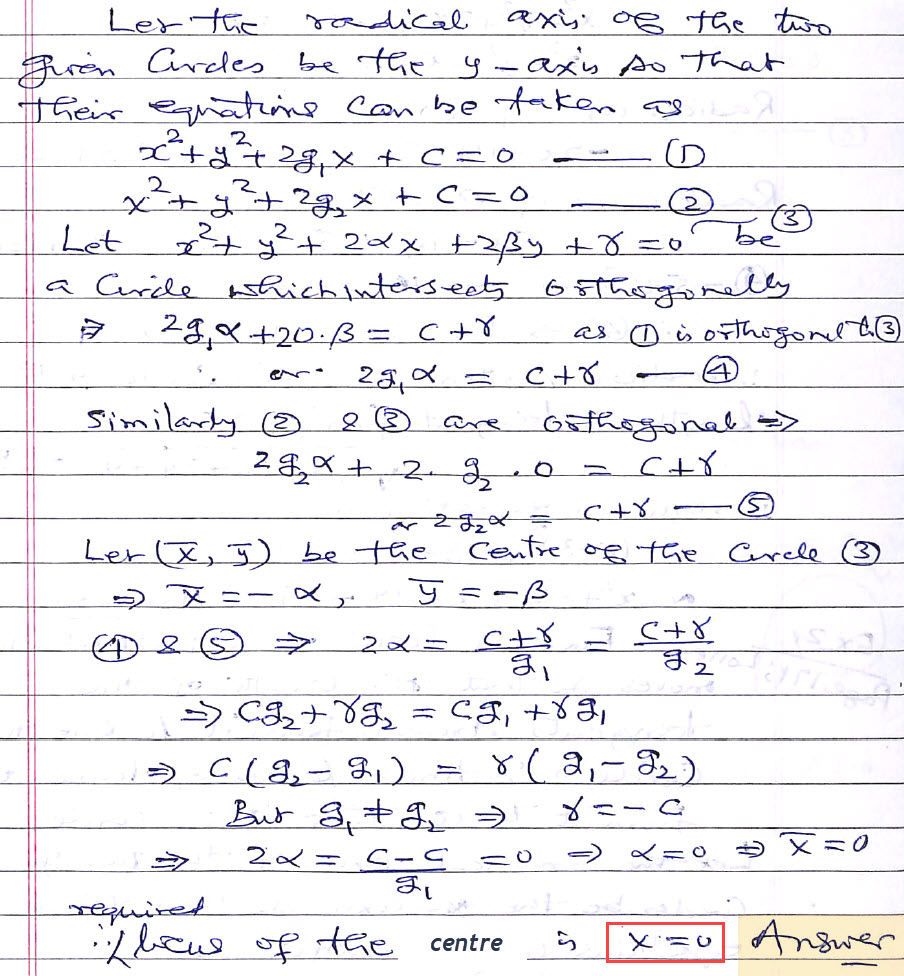 Let the radical axis of the two
given Circles be the y-axis so that
their equations can be taken as
x²+y²+2g₁x + c = 0 —— ①
x²+y²+2g₂x + c = 0 —— ②
Let x²+y²+2αx+2βy+γ=0 —③ be
a Circle which intersects orthogonally
⇒ 2g₁α+20.β = c+γ as ① is orthogonal to ③
or 2g₁α = c+γ —— ④
Similarly ② & ③ are orthogonal ⇒
2g₂α + 2. g₂ . 0 = c+γ
or 2g₂α = c+γ —— ⑤
Let (x̅, y̅) be the Centre of the Circle ③
⇒ x̅ = -α, y̅ = -β
④ & ⑤ ⇒ 2α = (c+γ)/g₁ = (c+γ)/g₂
⇒ cg₂+γg₂ = cg₁+γg₁
⇒ c(g₂-g₁) = γ(g₁-g₂)
But g₁≠g₂ ⇒ γ=-c
⇒ 2α = (c-c)/g₁ = 0 ⇒ α=0 ⇒ x̅=0
required
∴ locus of the centre is x=0 Answer